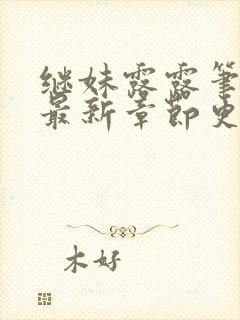 继妹露露笔
最新章节史
木好